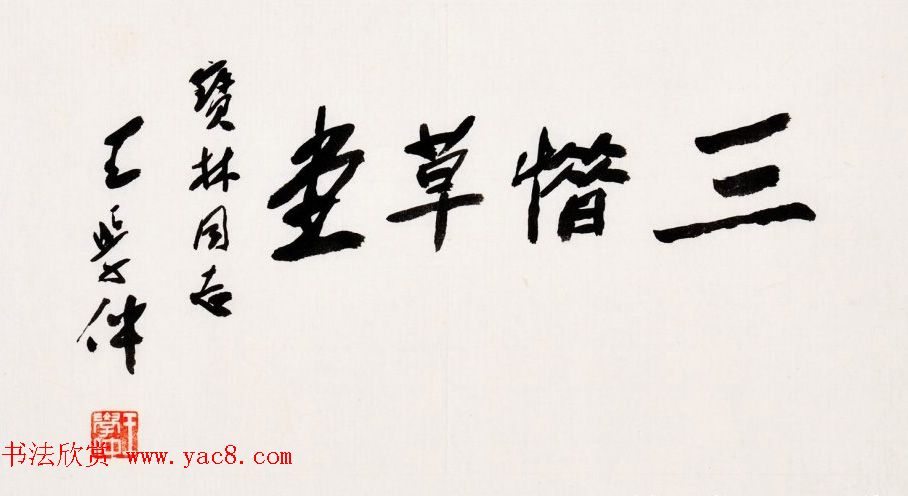 三憯草堂
寶林同志
王學仲
王學仲
书法欣赏 www.yac8.com